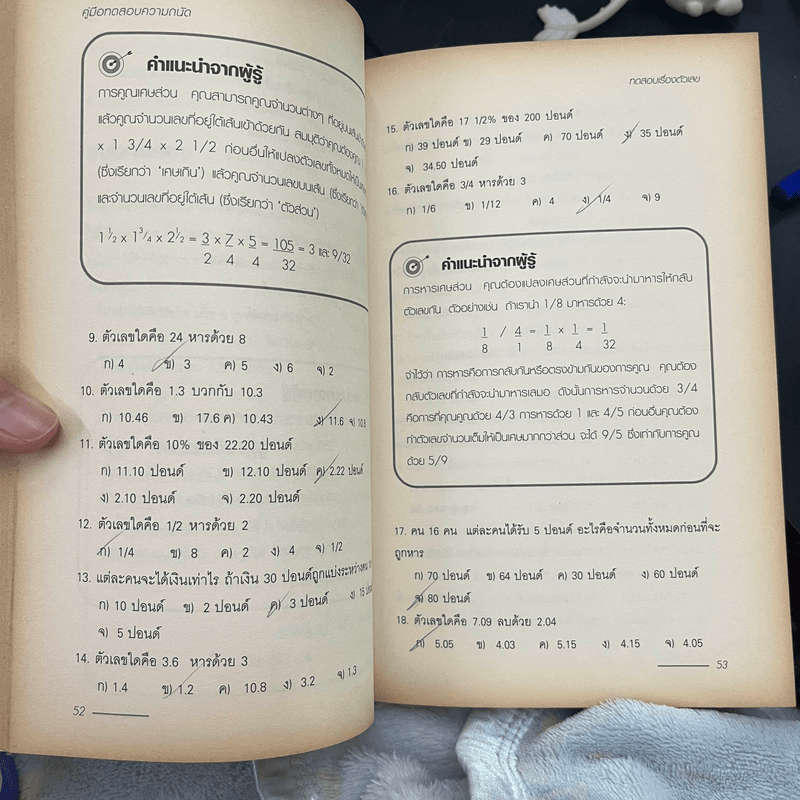 คู่มือทดสอบความถนัด
คำแนะนำจากผู้รู้
การคูณเศษส่วน คุณสามารถคูณจำนวนต่างๆ ที่อยู่บนเส้น
แล้วคูณจำนวนเลขที่อยู่ใต้เส้นเข้าด้วยกัน สมมุติว่าคุณต้องคูณ
x 1 3/4 x 2 1/2 ก่อนอื่นให้แปลงตัวเลขทั้งหมดให้เป็น
(ซึ่งเรียกว่า 'เศษเกิน') แล้วคูณจำนวนเลขบนเส้น (ซึ่งเรียกว่า
และจำนวนเลขที่อยู่ใต้เส้น (ซึ่งเรียกว่า 'ตัวส่วน')
1 1/2 x 1 3/4 x 2 1/2 = 3 x 7 x 5 = 105 = 3 และ 9/32
2 4 4 32
9. ตัวเลขใดคือ 24 หารด้วย 8
ก) 4 ข) 3 ค) 5 ง) 6 จ) 2
10. ตัวเลขใดคือ 1.3 บวกกับ 10.3
ก) 10.46 ข) 17.6 ค) 10.43 ง) 11.6 จ) 10.9
11. ตัวเลขใดคือ 10% ของ 22.20 ปอนด์
ก) 11.10 ปอนด์ ข) 12.10 ปอนด์ ค) 2.22 ปอนด์
ง) 2.10 ปอนด์ จ) 2.20 ปอนด์
12. ตัวเลขใดคือ 1/2 หารด้วย 2
ก) 1/4 ข) 8 ค) 2 ง) 4 จ) 1/2
13. แต่ละคนจะได้เงินเท่าไร ถ้าเงิน 30 ปอนด์ถูกแบ่งระหว่างคน
ก) 10 ปอนด์ ข) 2 ปอนด์ ค) 3 ปอนด์ ง) 15 ปอนด์
จ) 5 ปอนด์
14. ตัวเลขใดคือ 3.6 หารด้วย 3
ก) 1.4 ข) 1.2 ค) 10.8 ง) 3.2 จ) 1.3
52
ทดสอบเรื่องตัวเลข
15. ตัวเลขใดคือ 17 1/2% ของ 200 ปอนด์
ก) 39 ปอนด์ ข) 29 ปอนด์ ค) 70 ปอนด์ ง) 35 ปอนด์
จ) 34.50 ปอนด์
16. ตัวเลขใดคือ 3/4 หารด้วย 3
ก) 1/6 ข) 1/12 ค) 4 ง) 1/4 จ) 9
คำแนะนำจากผู้รู้
การหารเศษส่วน คุณต้องแปลงเศษส่วนที่กำลังจะนำมาหารให้กลับ
ตัวเลขกัน ตัวอย่างเช่น ถ้าเรานำ 1/8 มาหารด้วย 4:
1 / 4 = 1 x 1 = 1
8 1 8 4 32
จำไว้ว่า การหารคือการกลับกันหรือตรงข้ามกันของการคูณ คุณต้อง
กลับตัวเลขที่กำลังจะนำมาหารเสมอ ดังนั้นการหารจำนวนด้วย 3/4
คือการที่คุณคูณด้วย 4/3 การหารด้วย 1 และ 4/5 ก่อนอื่นคุณต้อง
ทำตัวเลขจำนวนเต็มให้เป็นเศษมากกว่าส่วน จะได้ 9/5 ซึ่งเท่ากับการคูณ
ด้วย 5/9
17. คน 16 คน แต่ละคนได้รับ 5 ปอนด์ อะไรคือจำนวนทั้งหมดก่อนที่จะ
ถูกหาร
ก) 70 ปอนด์ ข) 64 ปอนด์ ค) 30 ปอนด์ ง) 60 ปอนด์
จ) 80 ปอนด์
18. ตัวเลขใดคือ 7.09 ลบด้วย 2.04
ก) 5.05 ข) 4.03 ค) 5.15 ง) 4.15 จ) 4.05
53